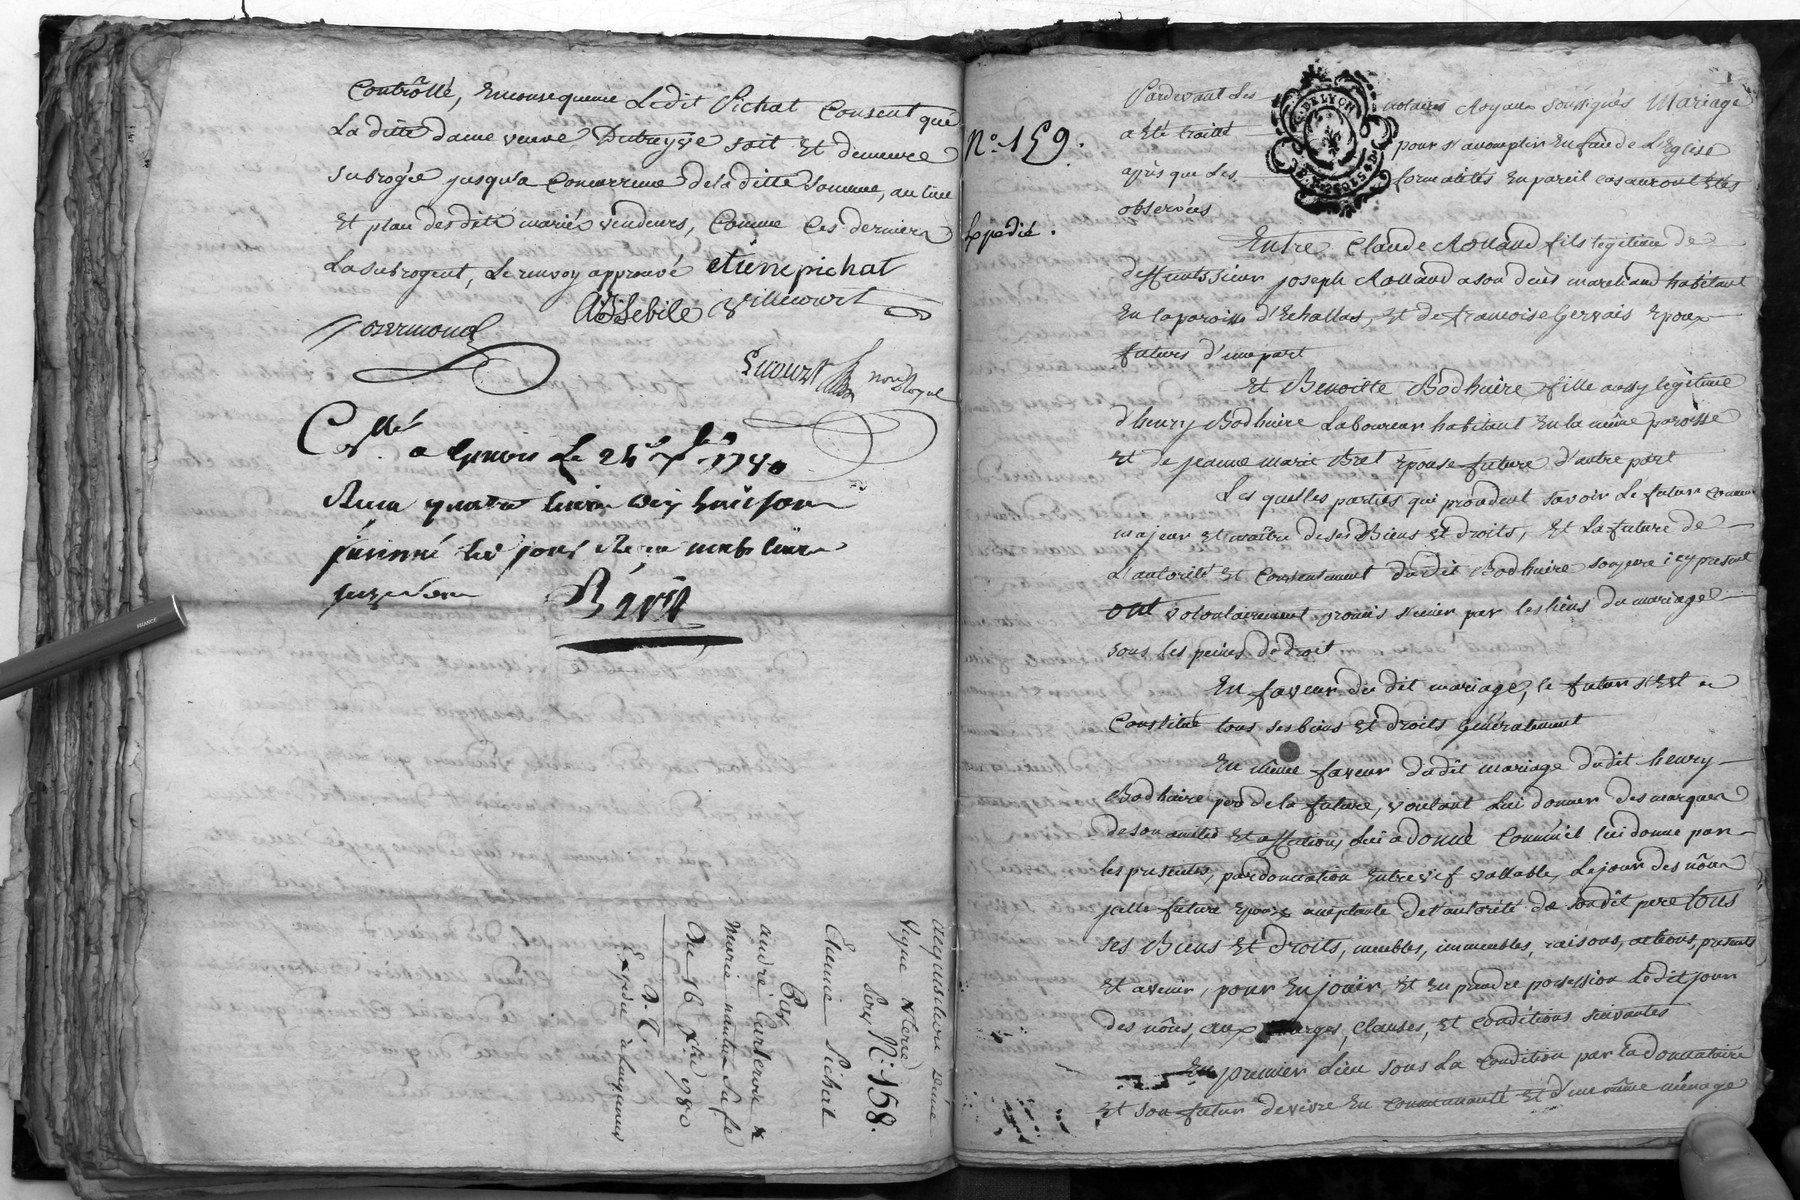 Contrôllé, En consequence Ledit Pichat Consent que
La ditte dame veuve Dutreyve soit Et demeure
Subrogée jusqu'a Concurrence de la ditte somme, au lieu
Et place des dits mariés vendeurs, Comme Ces derniers
La subrogent, Le renvoy approuvé etiene pichat
Villecourt
not. Royal
Cllé a le 24 Xbre 1780
Reçu quatre livres dix huit sols
N° 159.
Expedié.
Pardevant Les notaires Royaux soussignés Mariage
a Eté traité pour s'accomplir En face de L'Eglise
après que Les formalités En pareil cas auront Etés
observées
DE LYON
Entre Claude Rolland fils legitime de
deffunts sieur joseph Rolland a son deces marchand habitant
En la paroisse d'Echallas, Et de francoise Gervais Epoux
futurs d'une part
Et Benoitte Bodhuire fille aussy legitime
d'henry Bodhuire Laboureur habitant En la même paroisse
Et de jeanne marie Bret Epouse future d'autre part
Les quelles parties qui procedent savoir Le futur Comme
majeur et maître de ses Biens Et droits, Et La future de
L'autorité Et Consentement dudit Bodhuire son pere icy present
ont volontairement promis s'unir par les liens du mariage
sous les peines de droit
En faveur du dit mariage, le futur s'Est
Constitué tous ses biens Et droits Généralement
En même faveur dudit mariage ledit henry
Bodhuire pere de la future, voulant Lui donner des marques
de son amitié Et affection, Lui a donné Comme il lui donne par
les presentes, par donnation Entre vif vallable, Le jour des nôces
a jcelle future Epouse acceptante de l'autorité de son dit pere tous
ses Biens Et Droits, meubles, immeubles, raisons, actions, presents
Et avenir, pour En jouir Et En prendre possession Ledit jour
des nôces, aux charges, clauses, Et Conditions suivantes
En premier Lieu sous La Condition par la donnataire
Et son futur de vivre En Communauté Et d'un même ménage
N° 158.
Etienne Pichat
Par
andré
Marie
Du 16 Xbre 1780
FRANCE